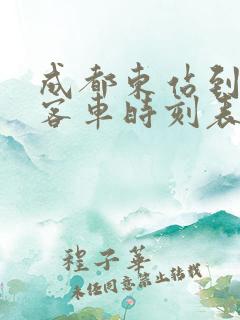 成都东站到
客车时刻表
程子华
未经同意禁止转载